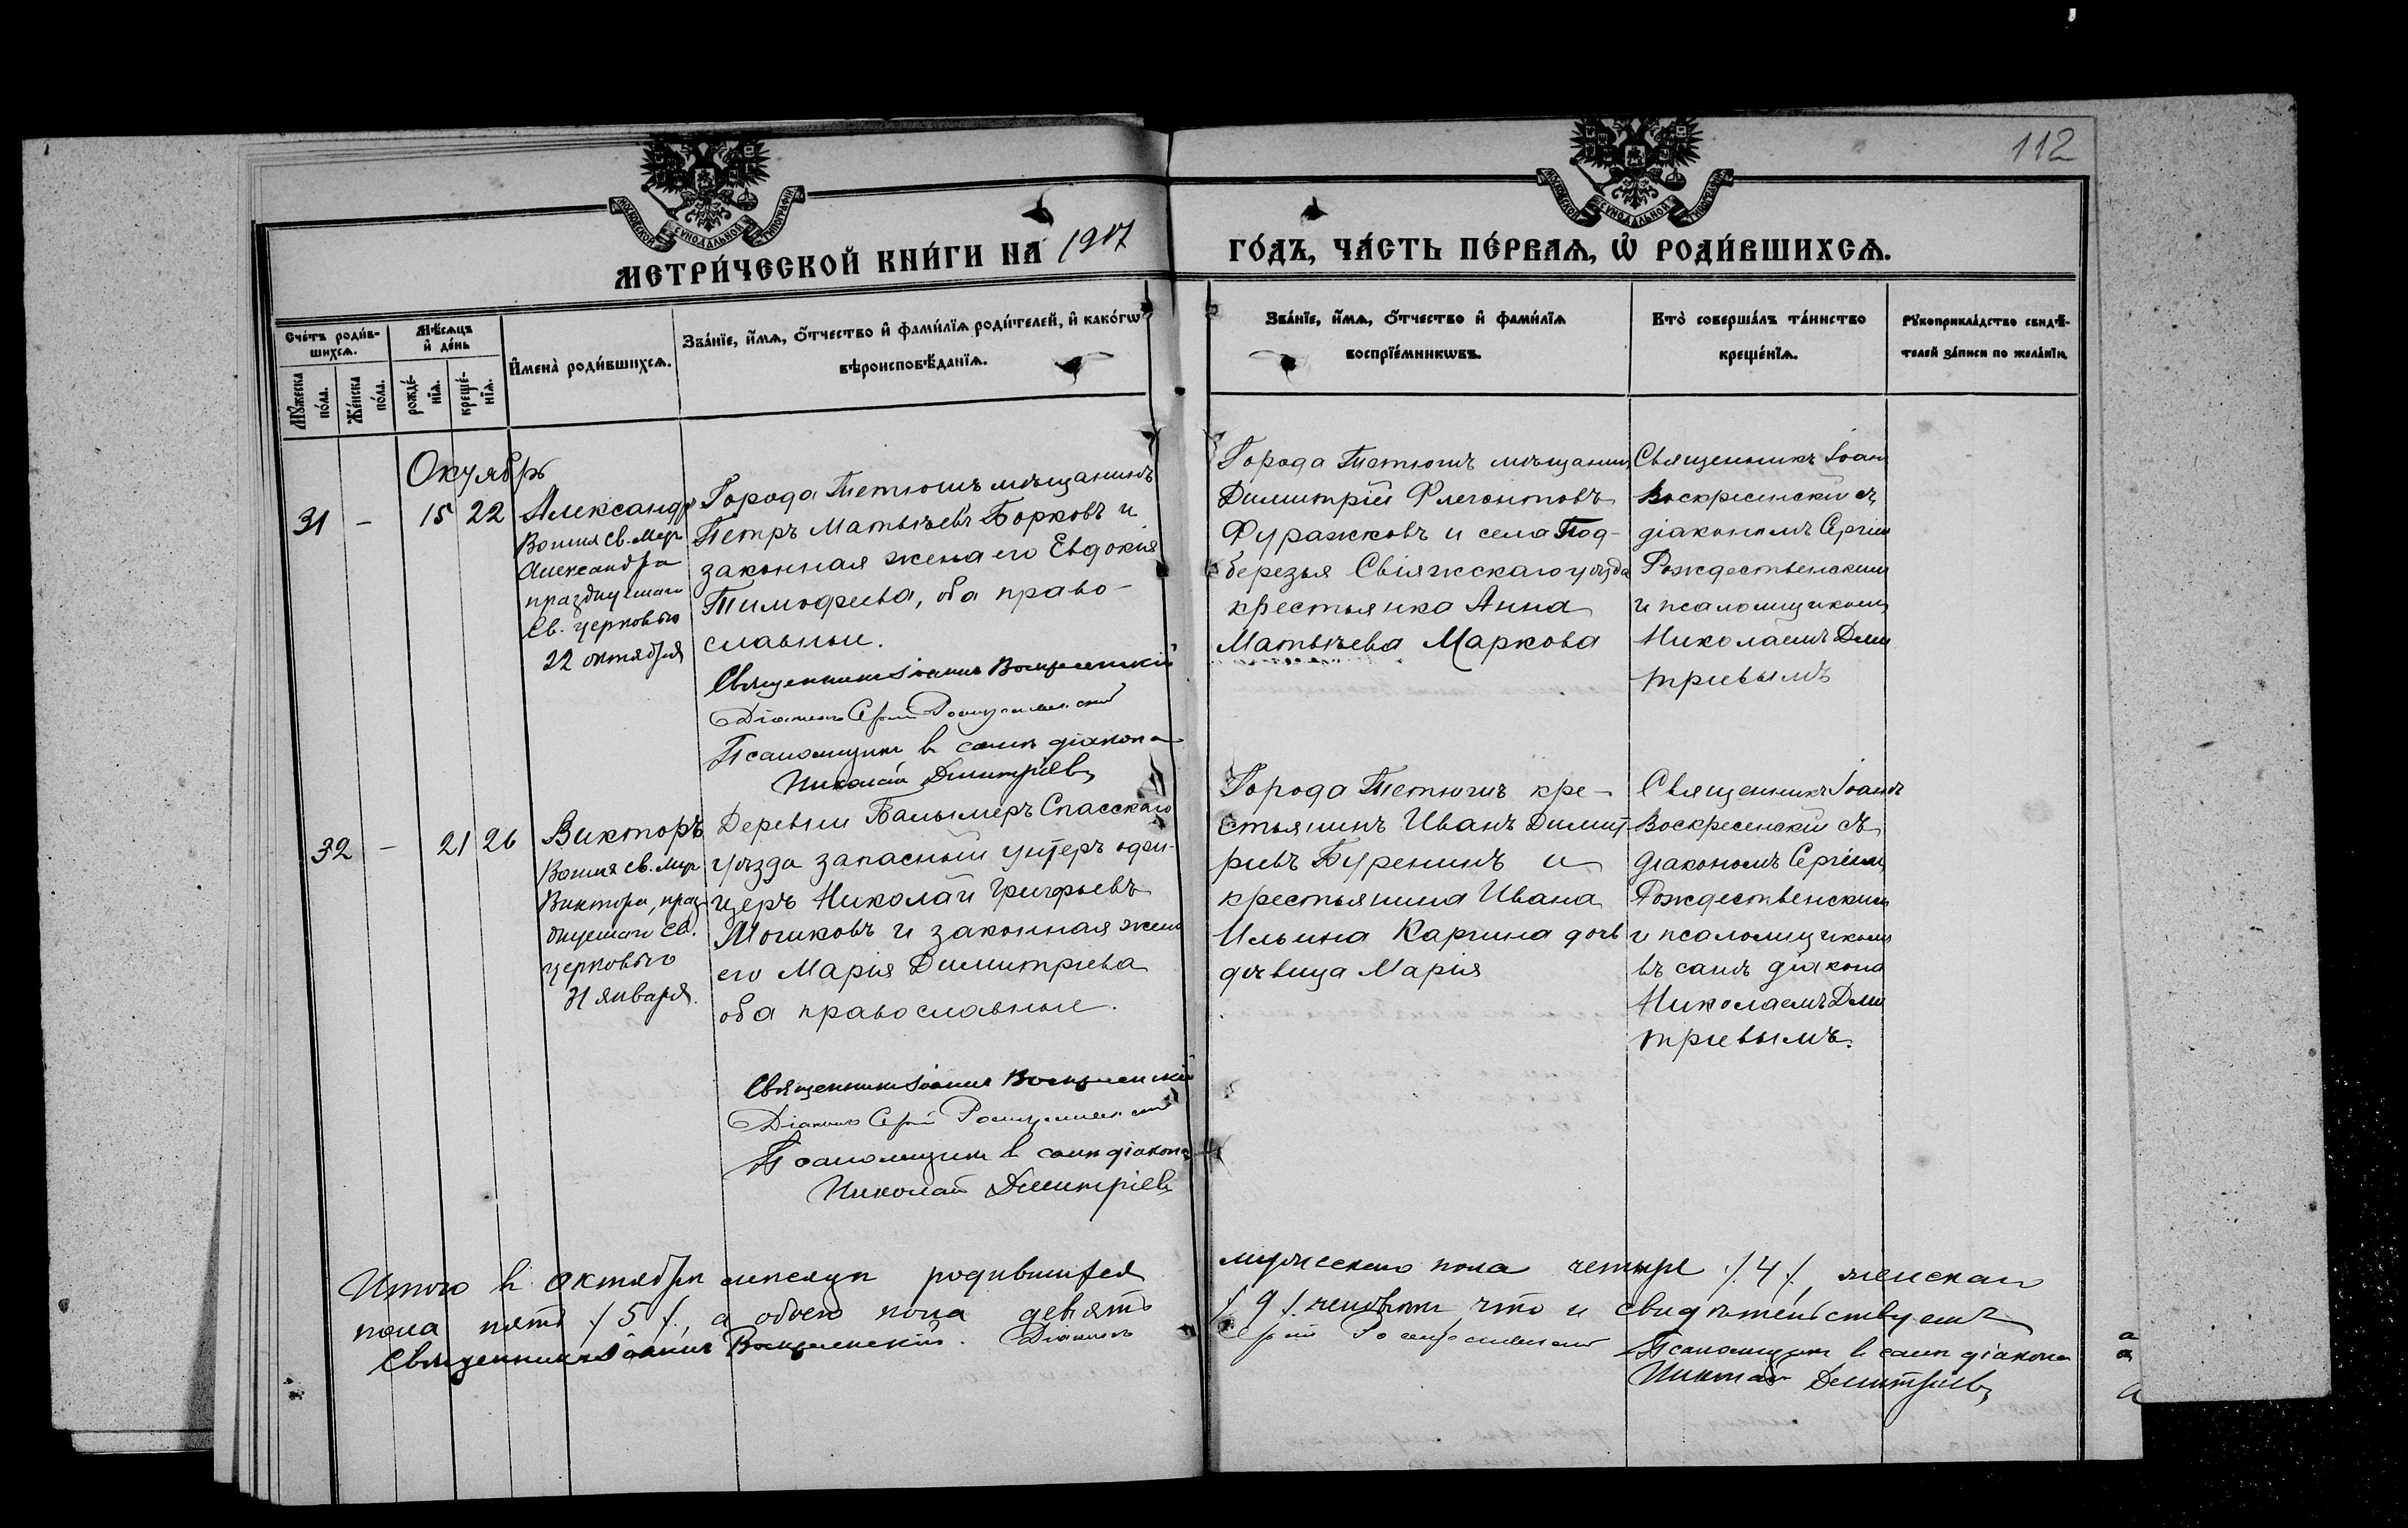 112
МОСКОВСКОЙ СѴНОДАЛЬНОЙ ТИПОГРАФІИ
МОСКОВСКОЙ СѴНОДАЛЬНОЙ ТИПОГРАФІИ
МЕТРИ́ЧЕСКОЙ КНИ́ГИ НА 1917
ГО́ДЪ, ЧА́СТЬ ПЕ́РВАѦ, Ѡ҆ РОДИ́ВШИХСѦ.
Сче́тъ роди́в-
шихсѧ.
Мѹ́жеска по́ла.
Же́нска по́ла.
Мѣ́сѧцъ
и҆ де́нь
рожде́-
нїѧ.
креще́-
нїѧ.
И҆мена̀ роди́вшихсѧ.
Зва́нїе, и҆́мѧ, ѻ҆́тчество и҆ фами́лїѧ роди́телей, и҆ како́гѡ
вѣроисповѣ́данїѧ.
Зва́нїе, и҆́мѧ, ѻ҆́тчество и҆ фами́лїѧ
воспрїе́мникѡвъ.
Кто̀ соверша́лъ та́инство
креще́нїѧ.
Рѹкоприкла́дство свидѣ́-
телей за́писи по жела́нїю.
Октябрь
31 - 15 22
Александръ
Воимя Св. Муч
Александра
празднуемаго
Св. Церковью
22 октября
Города Тетюшъ мѣщанинъ
Петръ Матвѣевъ Борковъ и
законная жена его Евдокия
Тимофеева, оба право-
славные.
Священникъ Іоаннъ Воскресенскій
Діаконъ Сергій Рождественскій
Псаломщикъ въ санѣ діакона
Николай Димитріевъ
Города Тетюшъ мѣщанинъ
Димитрій Флегонтовъ
Фуражковъ и села Под-
березья Свіяжскаго уѣзда
крестьянка Анна
Матвѣева Маркова
Священникъ Іоан
Воскресенскій съ
діакономъ Сергіем
Рождественским
и псаломщикомъ
Николаемъ Дми
триевымъ
32 - 21 26
Викторъ
Воимя Св. Муч
Виктора, праз
днуемаго Св.
Церковью
31 января.
Деревни Балымеръ Спасскаго
уѣзда запасный унтеръ офи-
церъ Николай Григорьевъ
Мошковъ и законная жена
его Марія Димитриева
оба православные.
Священникъ Іоаннъ Воскресенскій
Діаконъ Сергій Рождественскій
Псаломщикъ въ санѣ діакона
Николай Димитріевъ
Города Тетюшъ кре-
стьянинъ Иванъ Димит
риевъ Буренинъ и
крестьянина Ивана
Ильина Каргина дочь
дѣвица Марія
Священникъ Іоаннъ
Воскресенскій съ
діакономъ Сергіемъ
Рождественским
и псаломщикомъ
въ санѣ діакона
Николаемъ Дми
триевымъ.
Итого въ Октябрѣ мѣсяцѣ родившихся
мужескаго пола четыре /4/, женскаго
пола пять /5/, а обоего пола девять
/9/ человѣкъ, что и свидѣтельствуемъ
Священникъ Іоаннъ Воскресенскій. Діаконъ
Сергій Рождественскій
Псаломщикъ въ санѣ діакона
Николай Димитріевъ